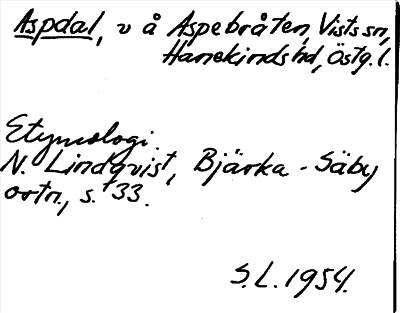 Aspdal, v å Aspebråten, Vists sn,
Hanekinds hd, Östg. l.
Etymologi.
N. Lindqvist, Bjärka-Säby
ortn., s. 33.
S.L. 1954.